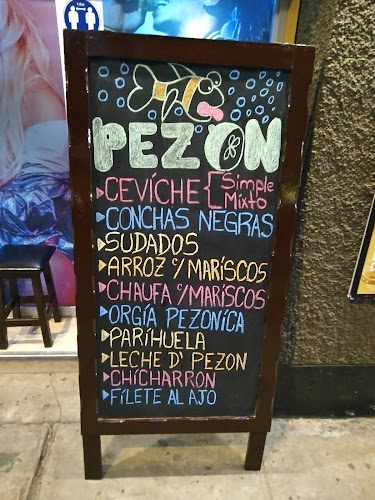 PEZON
CEVÍCHE { Simple
Mixto
CONCHAS NEGRAS
SUDADOS
ARROZ c/ MARÍSCOS
CHAUFA c/ MARISCOS
ORGÍA PEZONÍCA
PARÍHUELA
LECHE D' PEZON
CHÍCHARRON
FÍLETE AL AJO